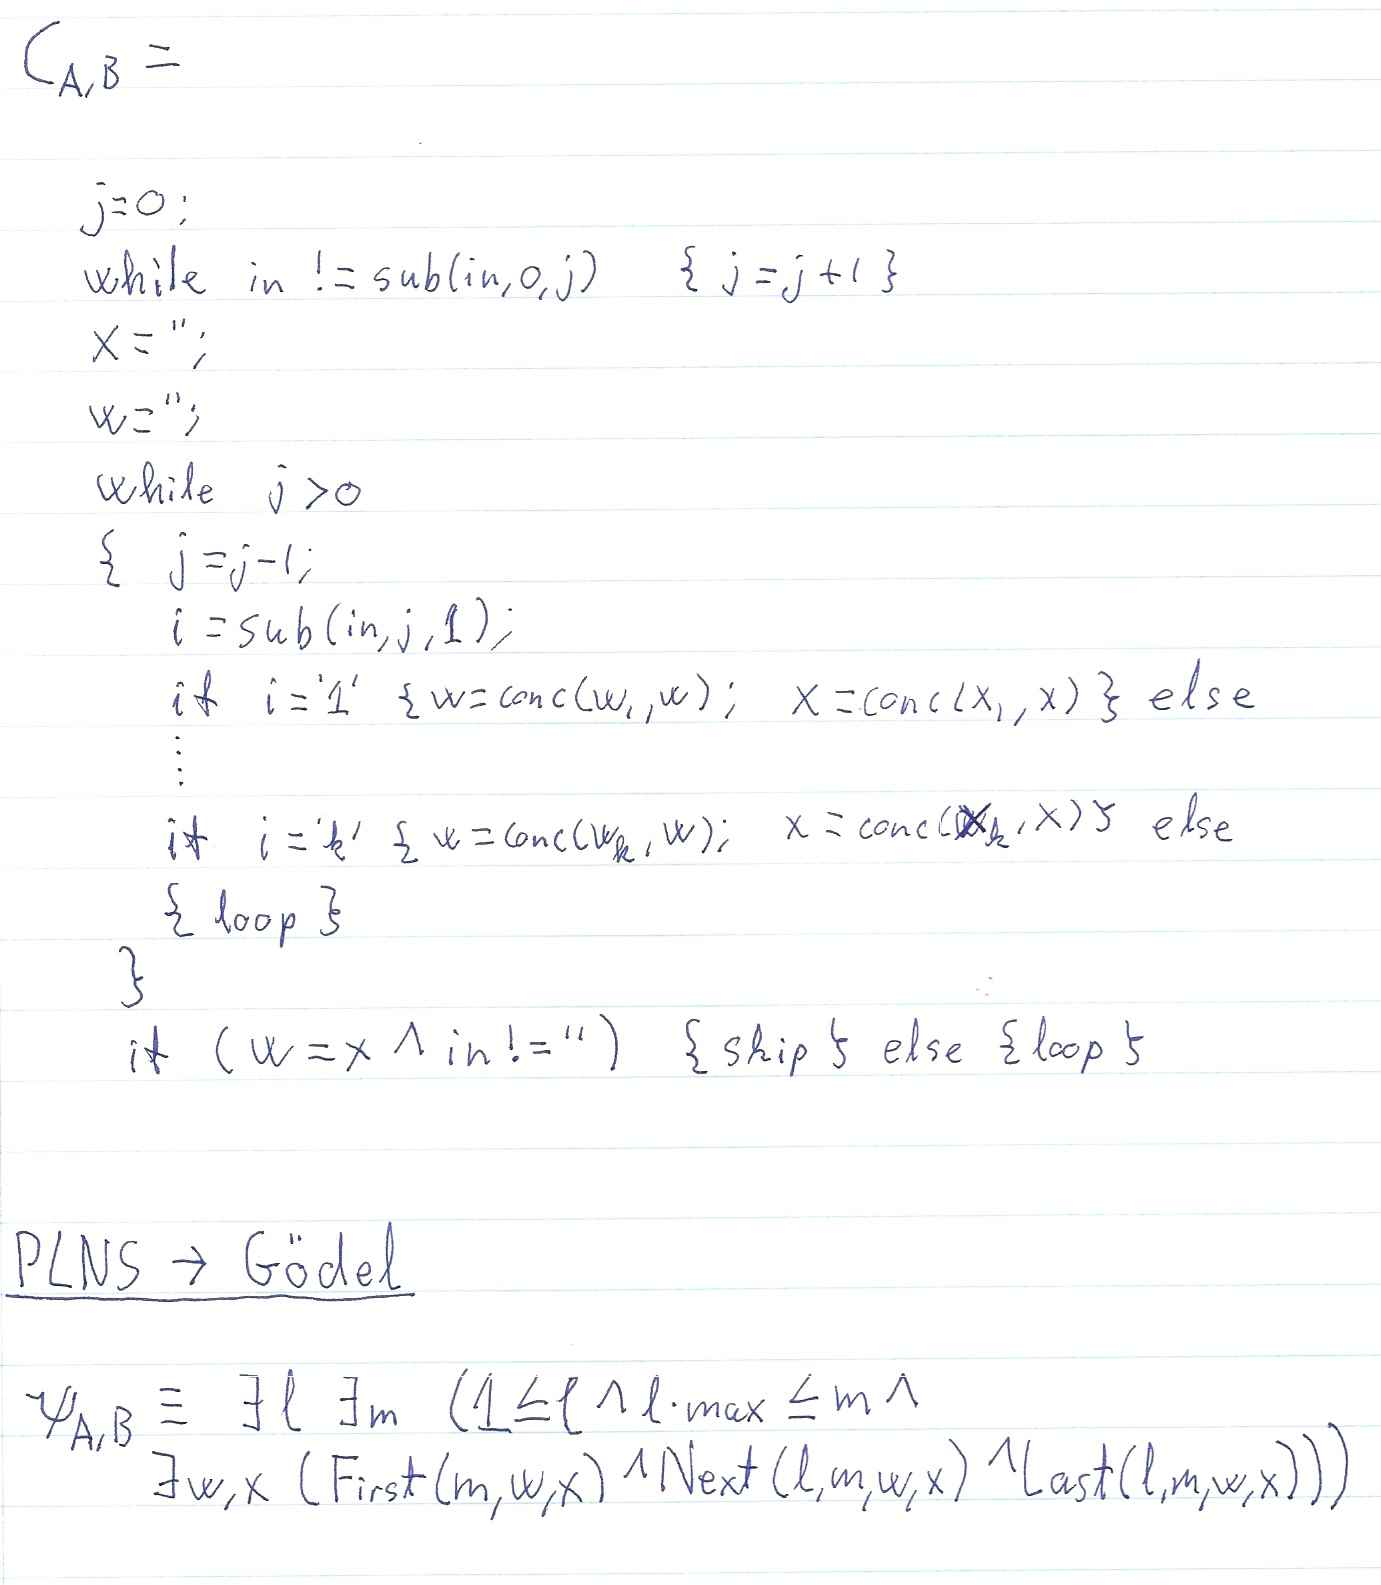 C_{A,B} =
j=0;
while in != sub(in,0,j) { j=j+1 }
x='';
w='';
while j>0
{ j=j-1;
i=sub(in,j,1);
if i='1' {w=conc(w₁,w); x=conc(x₁,x)} else
⋮
if i='k' {w=conc(w_k,w); x=conc(x_k,x)} else
{loop}
}
if (w=x ∧ in!='') {skip} else {loop}
PLNS → Gödel
ψ_{A,B} ≡ ∃l ∃m (1≤l ∧ l·max ≤ m ∧
∃w,x (First(m,w,x) ∧ Next(l,m,w,x) ∧ Last(l,m,w,x)))